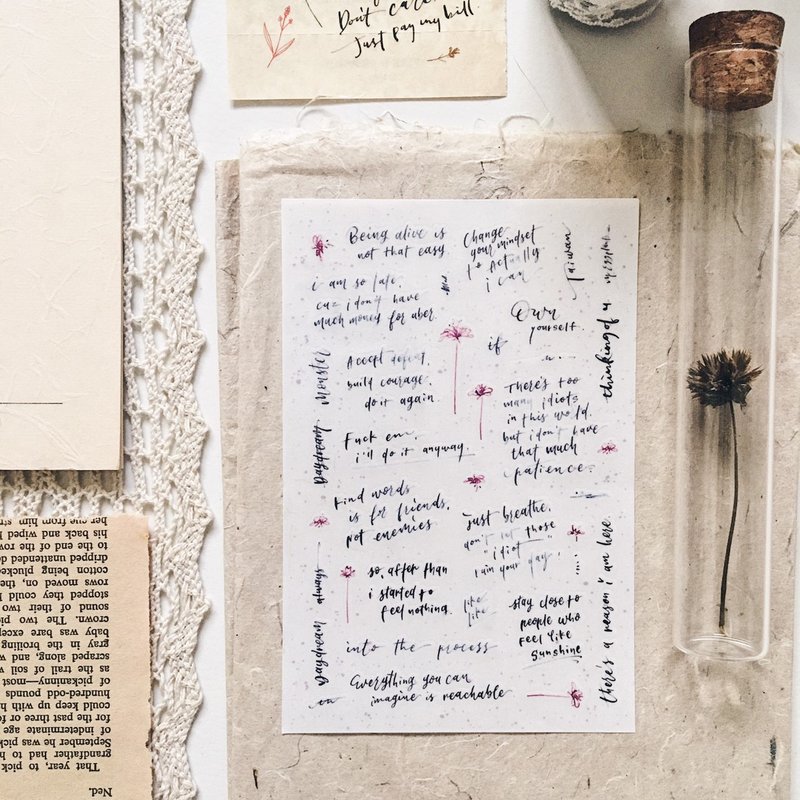 Don't care
Just pay my bill.
Being alive is
not that easy.
Change
your mindset
to Actually
i can
Taiwan
i am so late,
cuz i don't have
much money for uber.
Own
yourself.
if
thinking of u
monster
Daydream
Accept defeat,
build courage,
do it again
There's too
many idiots
in this world.
but i don't have
that much
patience.
Fuck em,
i'll do it anyway.
Kind words
is for friends,
not enemies
Just breathe.
don't let those
"idiot"
your day.
Daydream always
so, after than
i started to
feel nothing.
like
like
stay close to
people who
feel like
Sunshine
there's a reason i am here.
into the process
Everything you can
imagine is reachable
Ned.
That year, to pick
grandfather had to h
September he was pick
of indeterminate age
for the past three or fo
could keep up with h
hundred-odd pounds
of pickaninny—most
as the trail of soil w
scraped along, and w
gray in the broiling
baby was bare excep
crown. The two pic
sound of their two
stopped they could
rows moved on, the
cotton being plucke
dripped unattended
to the end of the row
his back and wiped